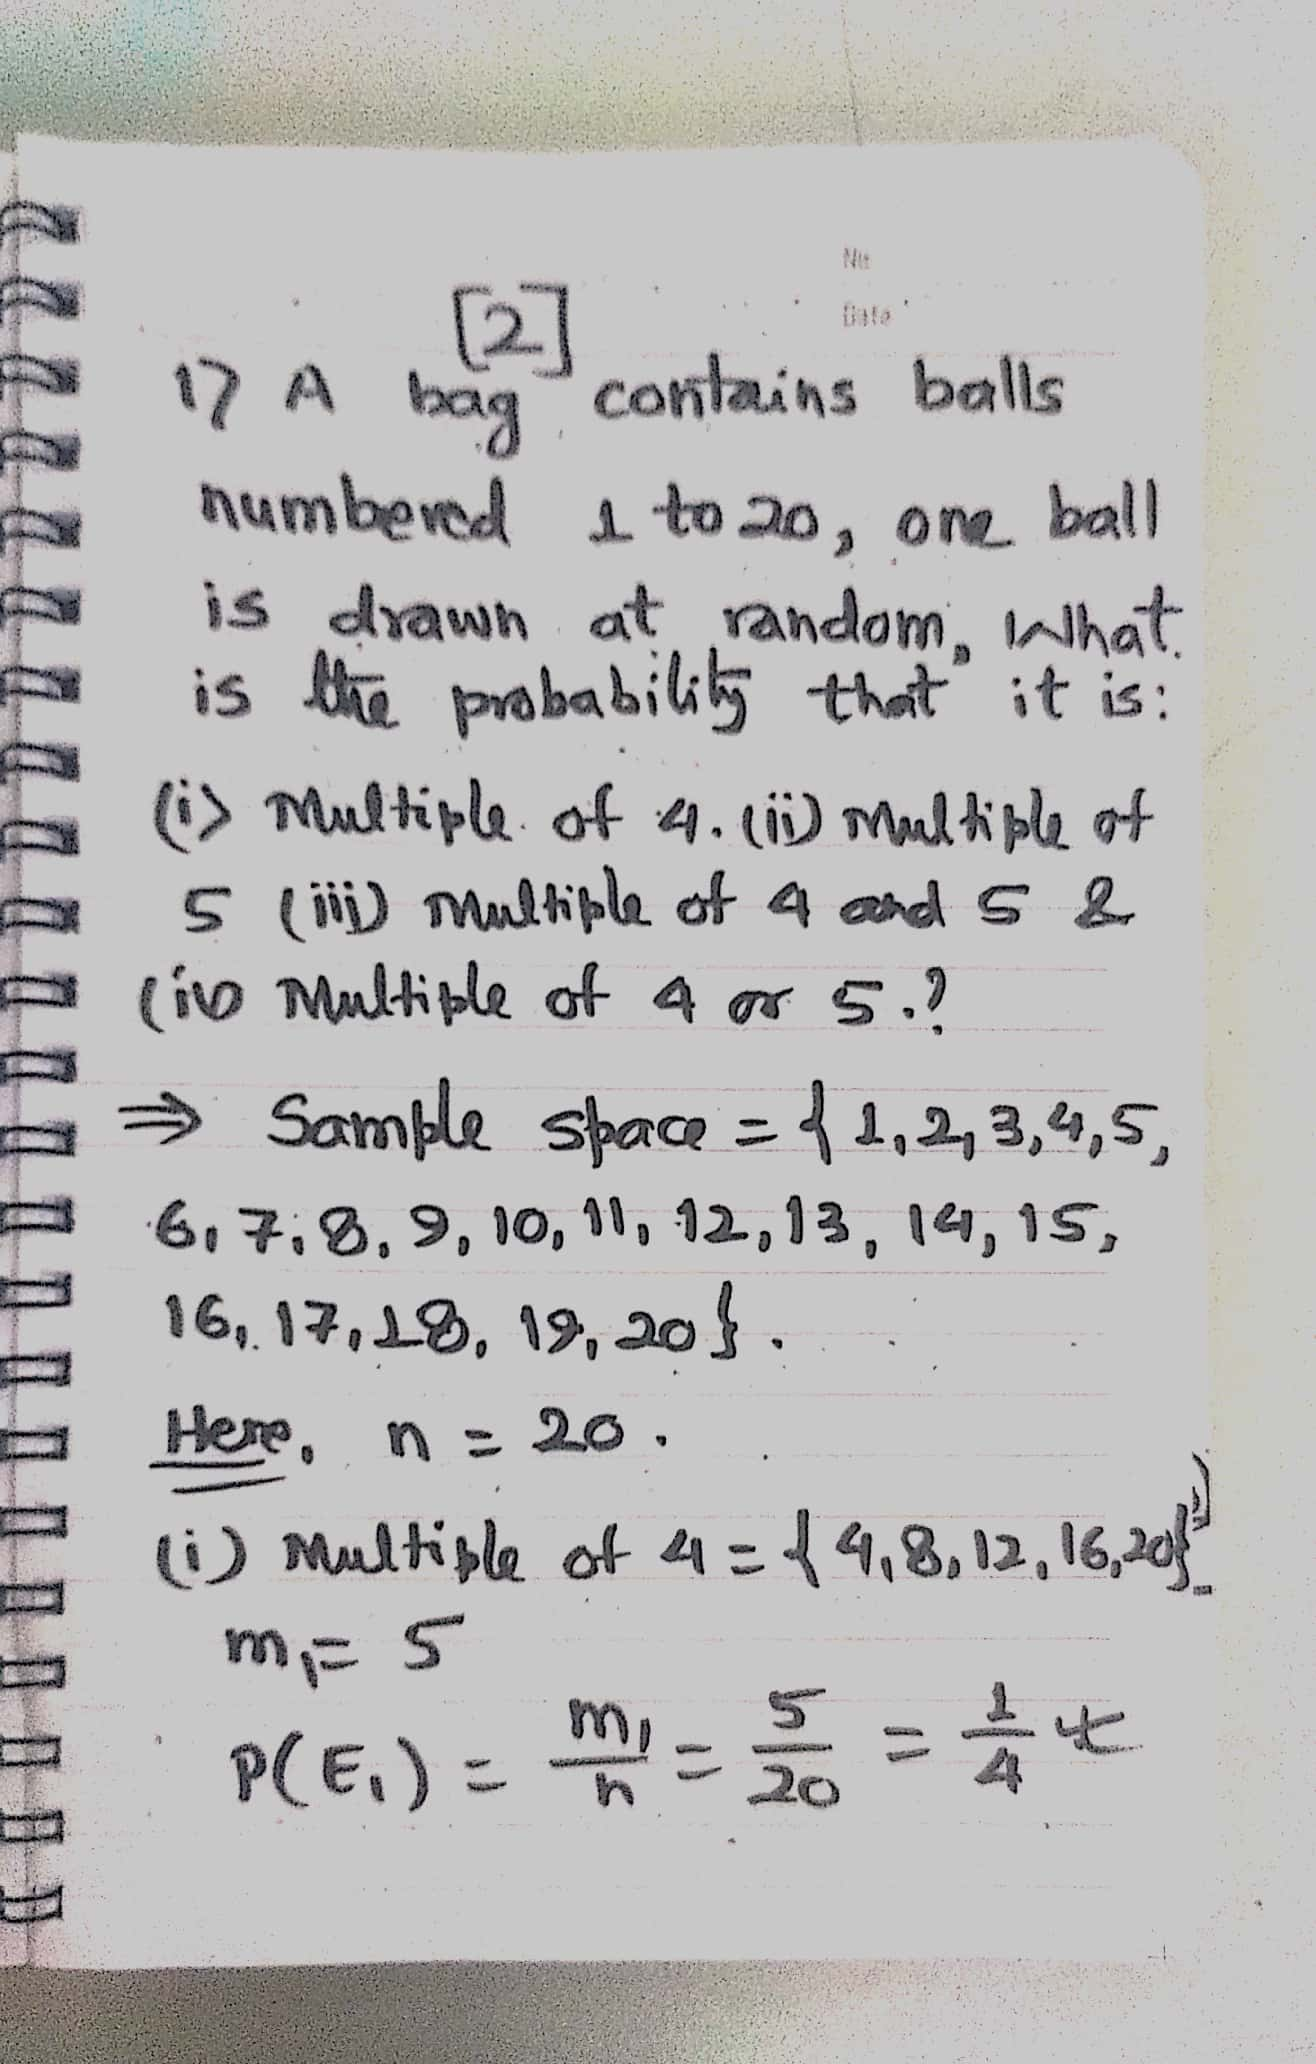 No
Date
[2]
1) A bag contains balls
numbered 1 to 20, one ball
is drawn at random, What
is the probability that it is:
(i) Multiple of 4. (ii) Multiple of
5 (iii) Multiple of 4 and 5 &
(iv) Multiple of 4 or 5.?
⇒ Sample space = {1, 2, 3, 4, 5,
6, 7, 8, 9, 10, 11, 12, 13, 14, 15,
16, 17, 18, 19, 20}.
Here, n = 20.
(i) Multiple of 4 = {4, 8, 12, 16, 20}
m₁ = 5
P(E₁) = m₁/n = 5/20 = 1/4